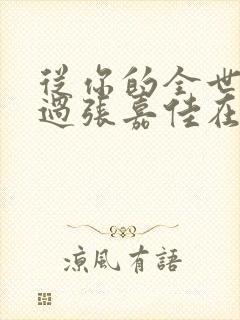 從你的全世
過張嘉佳在
涼風有語